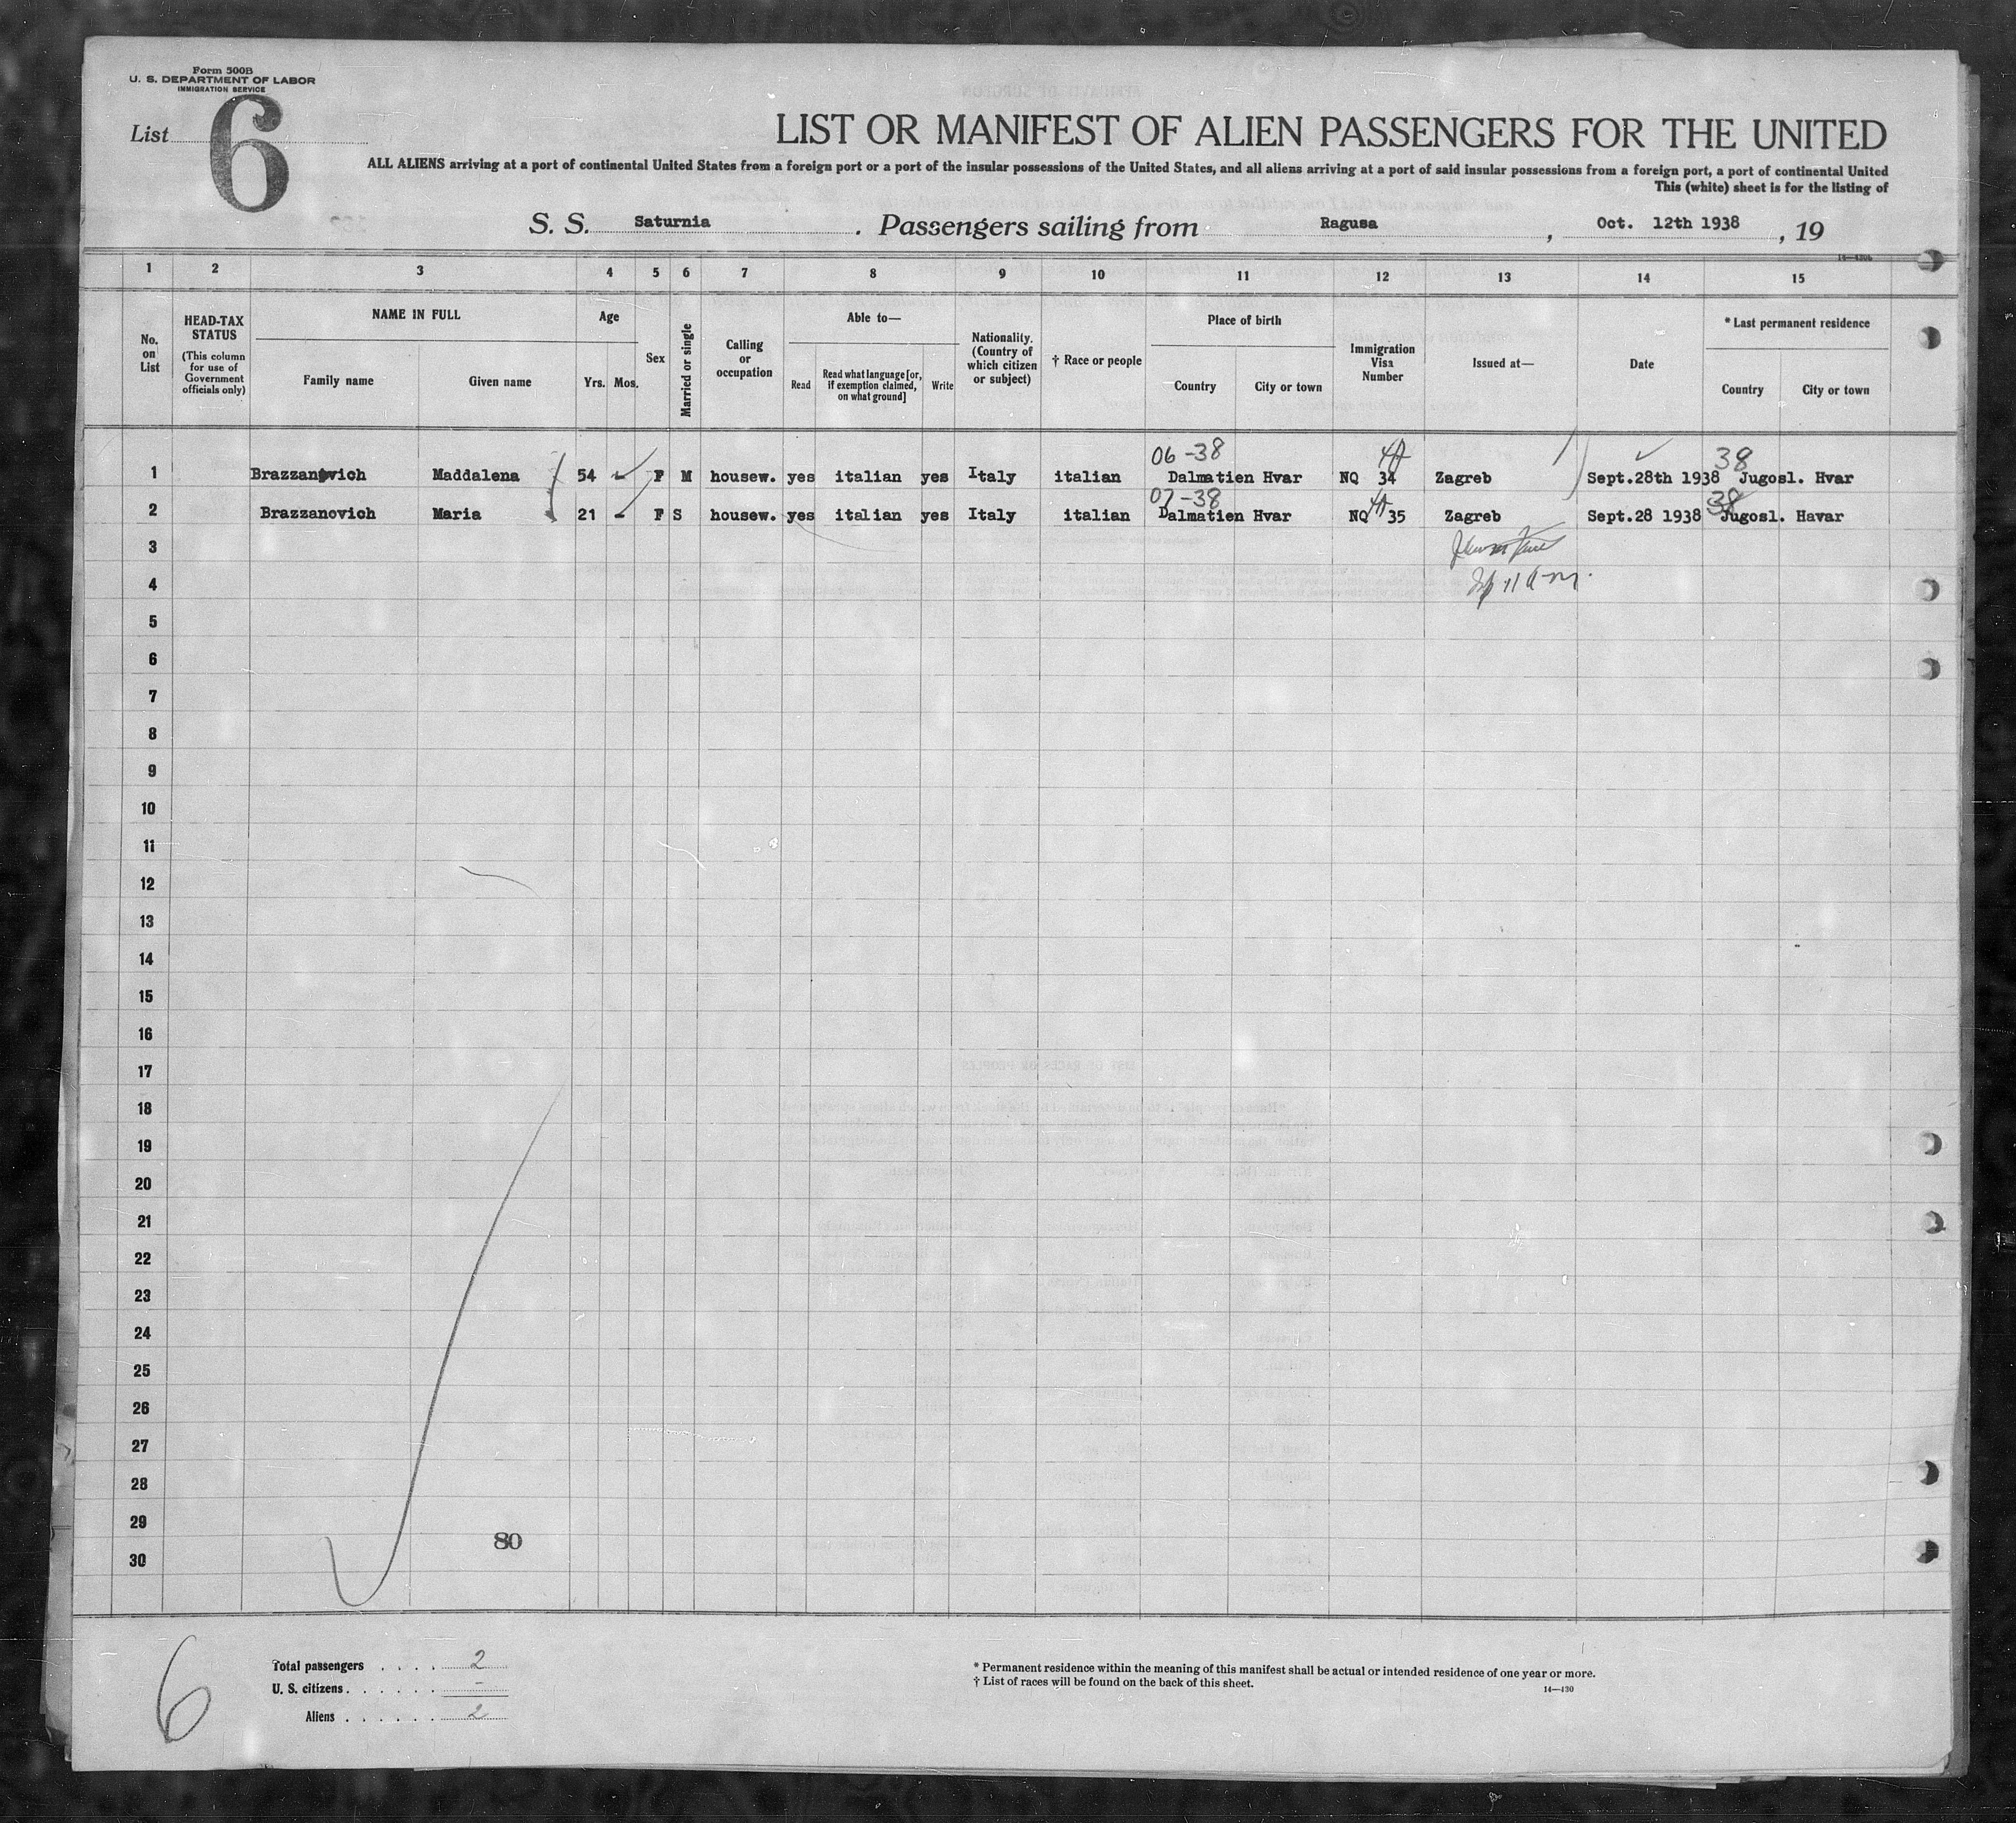 Form 500B
U. S. DEPARTMENT OF LABOR
IMMIGRATION SERVICE
List 6
LIST OR MANIFEST OF ALIEN PASSENGERS FOR THE UNITED
ALL ALIENS arriving at a port of continental United States from a foreign port or a port of the insular possessions of the United States, and all aliens arriving at a port of said insular possessions from a foreign port, a port of continental United
This (white) sheet is for the listing of
S. S. Saturnia. Passengers sailing from Ragusa, Oct. 12th 1938, 19
1 2 3 4 5 6 7 8 9 10 11 12 13 14 15
No. on List
HEAD-TAX STATUS
(This column for use of Government officials only)
NAME IN FULL
Family name Given name
Age
Yrs. Mos.
Sex
Married or single
Calling or occupation
Able to—
Read
Read what language [or, if exemption claimed, on what ground]
Write
Nationality. (Country of which citizen or subject)
† Race or people
Place of birth
Country City or town
Immigration Visa Number
Issued at—
Date
* Last permanent residence
Country City or town
06-38 38
1 Brazzanovich Maddalena 54 F M housew. yes italian yes Italy italian Dalmatien Hvar NQ 34 Zagreb Sept.28th 1938 Jugosl. Hvar
07-38 38
2 Brazzanovich Maria 21 F S housew. yes italian yes Italy italian Dalmatien Hvar NQ 35 Zagreb Sept.28 1938 Jugosl. Havar
3
4
5
6
7
8
9
10
11
12
13
14
15
16
17
18
19
20
21
22
23
24
25
26
27
28
29
80
30
6
Total passengers . . . . 2
U. S. citizens . . . . . . -
Aliens . . . . . . 2
* Permanent residence within the meaning of this manifest shall be actual or intended residence of one year or more.
† List of races will be found on the back of this sheet.
14—430